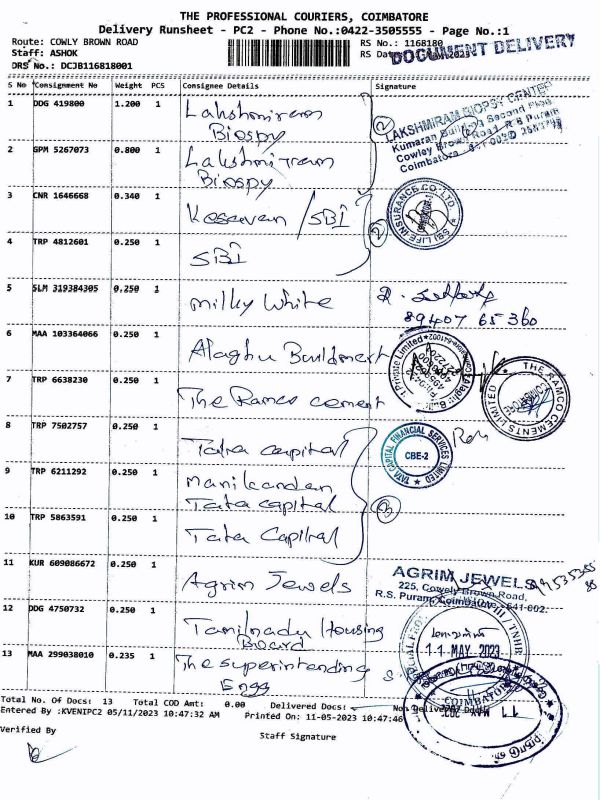 THE PROFESSIONAL COURIERS, COIMBATORE
Delivery Runsheet - PC2 - Phone No.:0422-3505555 - Page No.:1
Route: COWLY BROWN ROAD
RS No.: 1168180
Staff: ASHOK
DOCUMENT DELIVERY
DRS No.: DCJB116818001
S No Consignment No Weight PCS Consignee Details Signature
1 DDG 419800 1.200 1 Lakshmiram
Biospy
LAKSHMIRAM BIOPSY CENTER
Kumaran Building Second Floor
Cowley Brown Road R S Puram
Coimbatore
2 GPM 5267073 0.800 1 Lakshmiram
Biospy
3 CNR 1646668 0.340 1 Kesavan / SBI
SBI LIFE INSURANCE CO. LTD.
4 TRP 4812601 0.250 1 SBI
5 SLM 319384305 0.250 1 Milky White
89407 65360
6 MAA 103364066 0.250 1 Alaghu Buildmert
Private Limited
7 TRP 6638230 0.250 1 The Ramco cement
THE RAMCO CEMENTS LIMITED
8 TRP 7502757 0.250 1 Tata capital
TATA CAPITAL FINANCIAL SERVICES LIMITED
CBE-2
9 TRP 6211292 0.250 1 Manikandan
Tata capital
10 TRP 5863591 0.250 1 Tata Capital
11 KUR 609086672 0.250 1 Agrim Jewels
AGRIM JEWELS
225, Cowely Brown Road,
R.S. Puram, Coimbatore - 641 002.
12 DDG 4750732 0.250 1 Tamilnadu Housing
Board
11 MAY 2023
13 MAA 299038010 0.235 1 The superintending
Engg
COIMBATORE
Total No. Of Docs: 13 Total COD Amt: 0.00 Delivered Docs: Non Delivered Docs:
Entered By :KVENIPC2 05/11/2023 10:47:32 AM Printed On: 11-05-2023 10:47:46
Verified By
Staff Signature